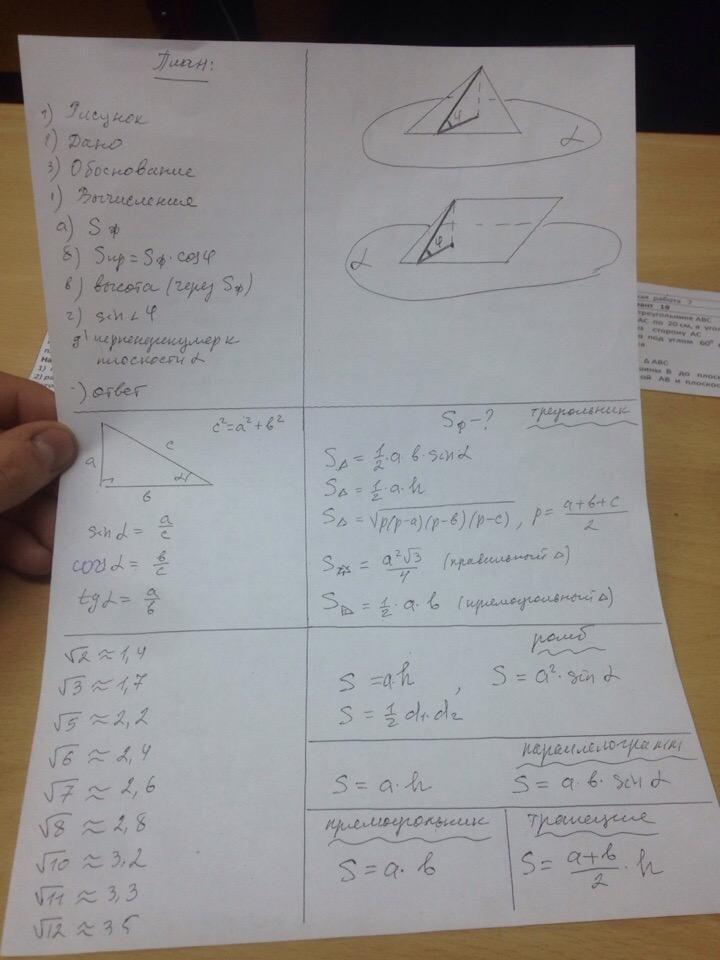 План:
1) Рисунок
2) Дано
3) Обоснование
1) Вычисления
а) Sф
б) Sпр = Sф · cosφ
в) высота (через Sф)
г) sin∠φ
д) перпендикуляр к
плоскости α
) ответ
φ
α
φ
α
c² = a² + b²
a
c
α
b
sinα = a/c
cosα = b/c
tgα = a/b
Sф – ?
треугольник
S△ = 1/2 · a · b · sinα
S△ = 1/2 · a · h
S△ = √p(p-a)(p-b)(p-c) , p = (a+b+c)/2
S△ = a²√3/4 (правильный △)
S△ = 1/2 · a · b (прямоугольный △)
√2 ≈ 1,4
√3 ≈ 1,7
√5 ≈ 2,2
√6 ≈ 2,4
√7 ≈ 2,6
√8 ≈ 2,8
√10 ≈ 3,2
√11 ≈ 3,3
√12 ≈ 3,5
ромб
S = a·h , S = a² · sinα
S = 1/2 d₁ · d₂
параллелограмм
S = a · h S = a · b · sinα
прямоугольник
S = a · b
трапеция
S = (a+b)/2 · h
работа 7
19
треугольника ABC
AC по 20 см, а угол
сторону AC
под углом 60°
Δ ABC
B до
AB и
1)
2)